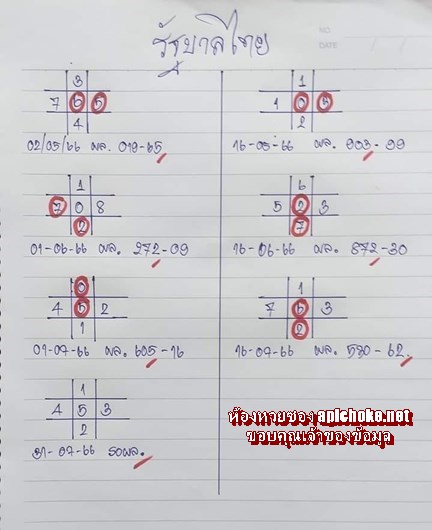 รัฐบาลไทย
NO.
DATE
3
7 6 5
4
02/05/66 ผล. 019-65
1
1 0 3
2
16-05-66 ผล. 903-99
1
7 0 8
2
01-06-66 ผล. 272-09
6
5 2 3
7
16-06-66 ผล. 872-30
0
4 6 2
1
01-07-66 ผล. 605-16
1
7 6 3
2
16-07-66 ผล. 530-62
1
4 5 3
2
31-07-66 รอผล.
ห้องหวยซอง apichoke.net
ขอบคุณเจ้าของข้อมูล